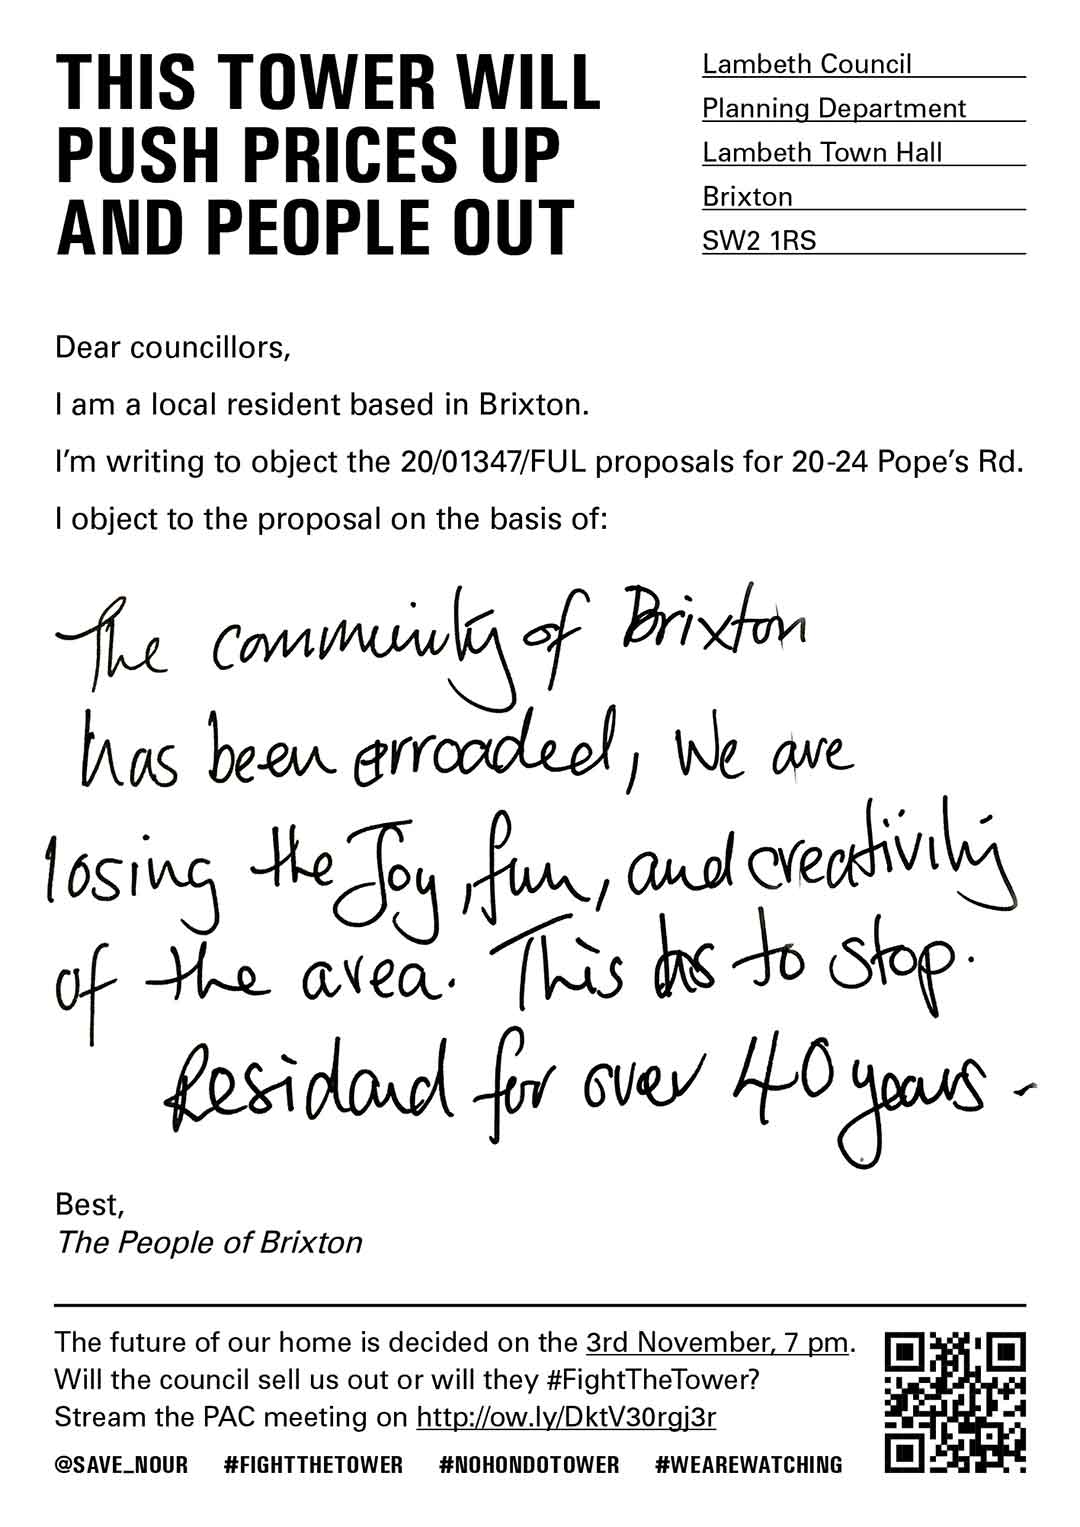 THIS TOWER WILL
PUSH PRICES UP
AND PEOPLE OUT
Lambeth Council
Planning Department
Lambeth Town Hall
Brixton
SW2 1RS
Dear councillors,
I am a local resident based in Brixton.
I'm writing to object the 20/01347/FUL proposals for 20-24 Pope's Rd.
I object to the proposal on the basis of:
The community of Brixton
has been erroaded, We are
losing the Joy, fun, and creativity
of the area. This has to stop.
Residand for over 40 years -
Best,
The People of Brixton
The future of our home is decided on the 3rd November, 7 pm.
Will the council sell us out or will they #FightTheTower?
Stream the PAC meeting on http://ow.ly/DktV30rgj3r
@SAVE_NOUR #FIGHTTHETOWER #NOHONDOTOWER #WEAREWATCHING